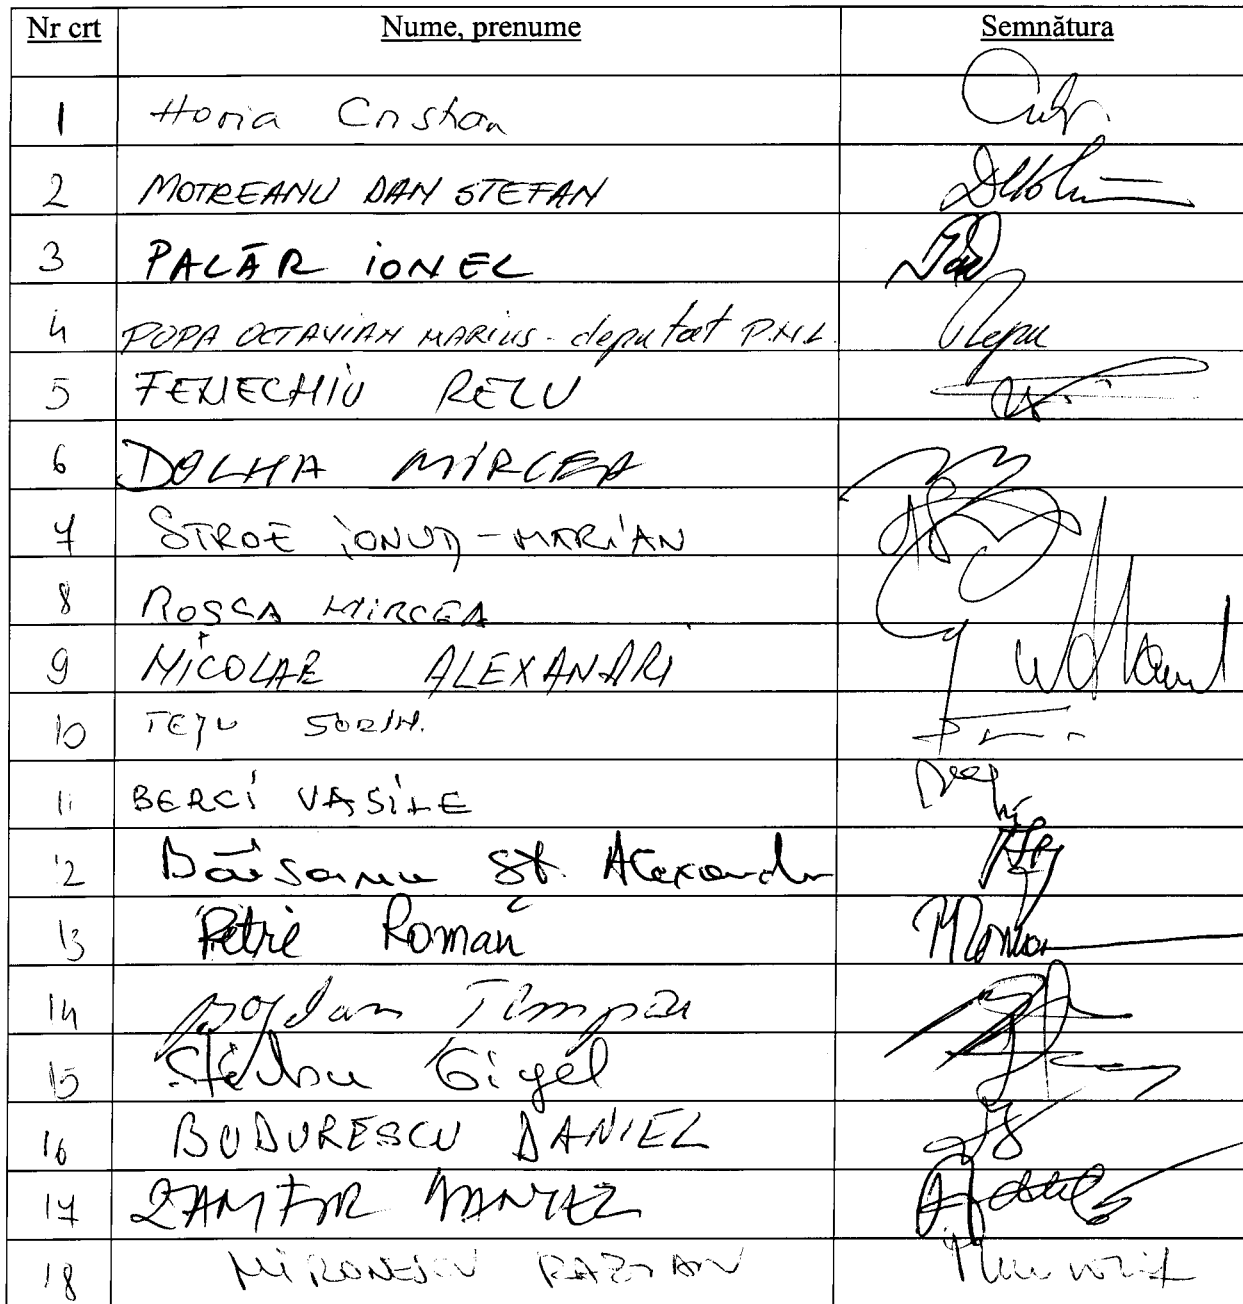 Nr crt Nume, prenume Semnătura
1 Horia Cristian
2 MOTREANU DAN STEFAN
3 PALĂR IONEL
4 POPA OCTAVIAN MARIUS - deputat P.N.L.
5 FENECHIU RELU
6 DOLHA MIRCEA
7 STROE IONUȚ-MARIAN
8 ROSCA MIRCEA
9 NICOLAE ALEXANDRI
10 TEJU SORIN.
11 BERCI VASILE
12 Băisanu Șt. Alexandru
13 Petre Roman
14 Bogdan Țîmpău
15 Știrbu Gigel
16 BUDURESCU DANIEL
17 ZAMFIR DANIEL
18 MIRONESCU RAZVAN